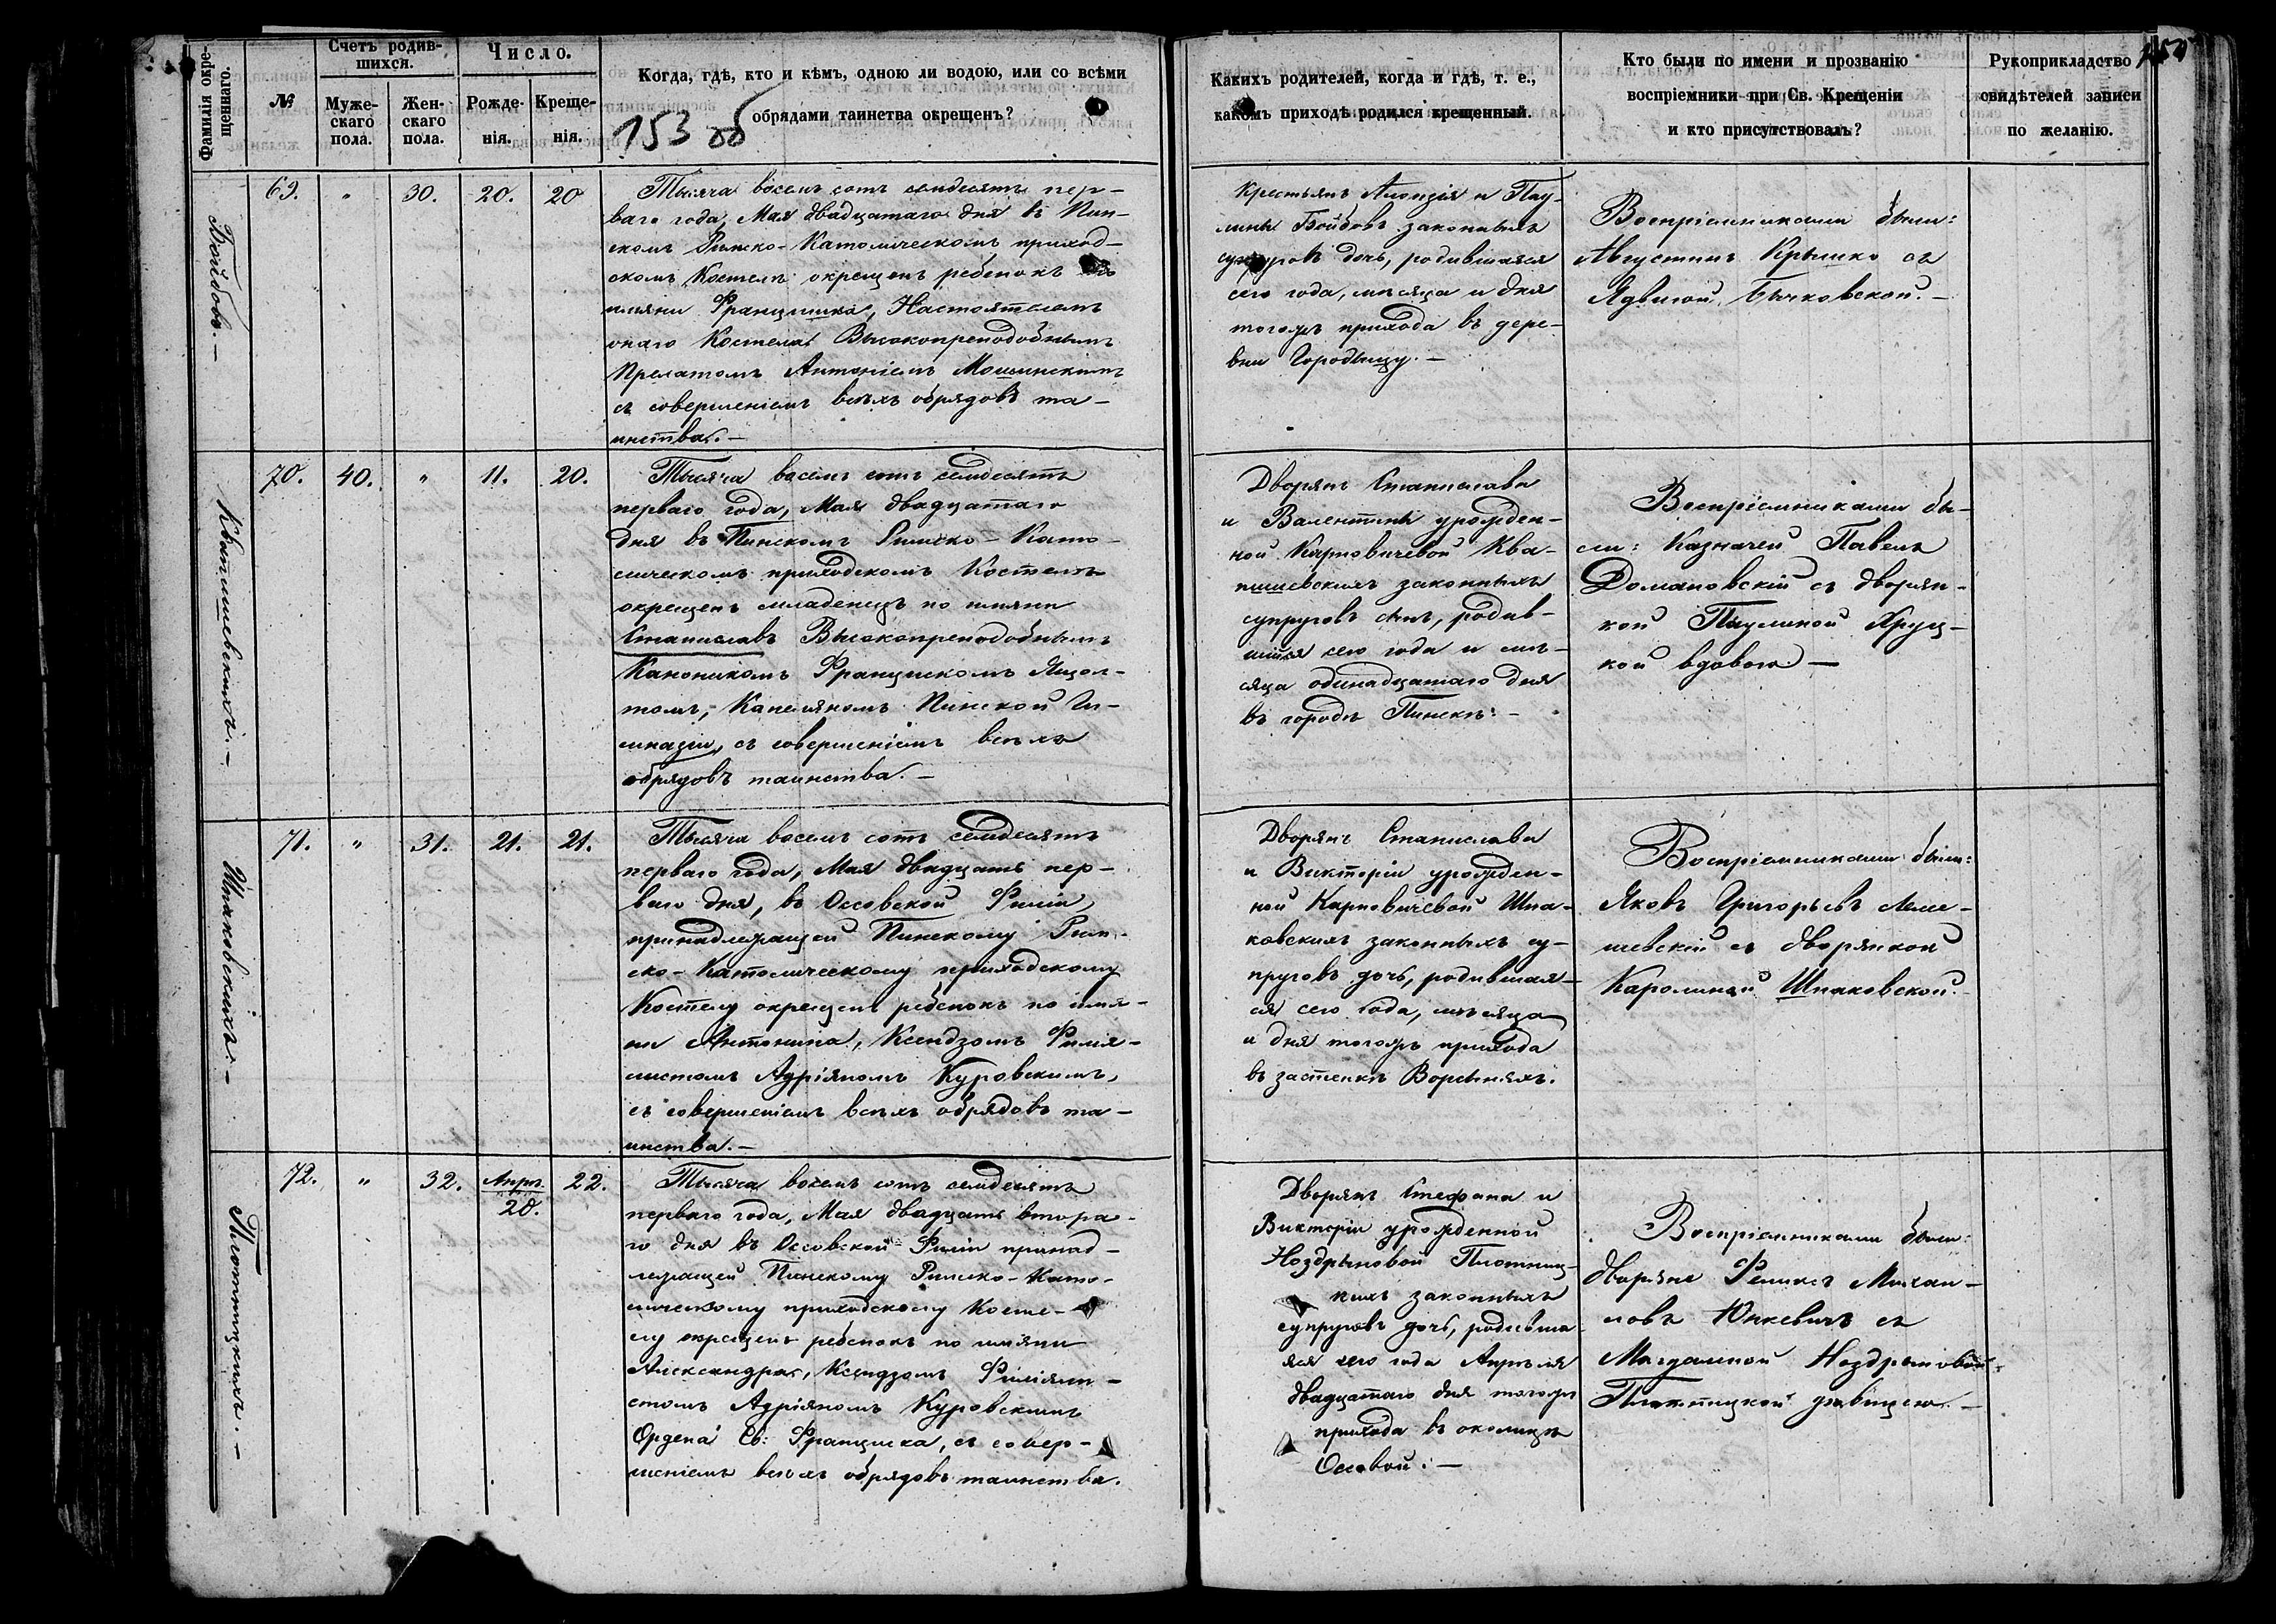 Фамилія окре-
щеннаго.
№
Счетъ родив-
шихся.
Муже-
скаго
пола.
Жен-
скаго
пола.
Число.
Рожде-
нія.
Креще-
нія.
Когда, гдѣ, кто и кѣмъ, одною ли водою, или со всѣми
обрядами таинства окрещенъ?
153 об
Какихъ родителей, когда и гдѣ, т. е.,
какомъ приходѣ родился крещенный.
Кто были по имени и прозванію
воспріемники при Св. Крещеніи
и кто присутствовалъ?
Рукоприкладство
свидѣтелей записи
по желанію.
Бойдовъ.—
69.
"
30.
20.
20
Тысяча восемь сотъ семдесятъ пер-
ваго года, Мая двадцатаго дня въ Пин-
скомъ Римско-Католическомъ приход-
скомъ Костелѣ окрещенъ ребенокъ по
имяни Францишка, Настоятелемъ
онаго Костела Высокопреподобнымъ
Прелатомъ Антоніемъ Мошинскимъ
съ совершеніемъ всѣхъ обрядовъ та-
инства.—
Крестьянъ Алоизія и Пау-
лины Бойдовъ законныхъ
супруговъ дочь, родившаяся
сего года, мѣсяца и дня
тогожъ прихода въ дере-
вни Городищу.—
Воспріемниками были:
Августинъ Крышко съ
Ядвигой Бычковской.—
Квятпишевскихъ.—
70.
40.
"
11.
20.
Тысяча восемь сотъ семдесятъ
перваго года, Мая двадцатаго
дня въ Пинскомъ Римско-Като-
лическомъ приходскомъ Костелѣ
окрещенъ младенецъ по имяни
Станиславъ Высокопреподобнымъ
Каноникомъ Францискомъ Яцол-
томъ, Капеляномъ Пинской Ги-
мназіи, съ совершеніемъ всѣхъ
обрядовъ таинства.—
Дворянъ Станислава
и Валентины урожден-
ной Карповичевой Ква-
пишевскихъ законныхъ
супруговъ сынъ, родив-
шійся сего года и мѣ-
сяца одинадцатаго дня
въ городѣ Пинскѣ.—
Воспріемниками бы-
ли: Казначей Павелъ
Домановскій съ дворян-
кой Паулиной Хруц-
кой вдовою.—
Шпаковскихъ.—
71.
"
31.
21.
21.
Тысяча восемь сотъ семдесятъ
перваго года, Мая двадцать пер-
ваго дня, въ Оссовской Филіи
принадлежащей Пинскому Рим-
ско-Католическому приходскому
Костелу окрещенъ ребенокъ по имя-
ни Антонина, Ксендзомъ Филія-
листомъ Адріяномъ Куровскимъ,
съ совершеніемъ всѣхъ обрядовъ та-
инства.—
Дворянъ Станислава
и Викторіи урожден-
ной Карповичевой Шпа-
ковскихъ законныхъ су-
пруговъ дочь, родившая-
ся сего года, мѣсяца
и дня тогожъ прихода
въ застенкѣ
Воспріемниками были:
Яковъ Григорьевъ Леме-
шевскій съ дворянкой
Каролиной Шпаковской.
Плотницкихъ.—
72.
"
32.
Апрѣ.
20.
22.
Тысяча восемь сотъ семдесятъ
перваго года, Мая двадцать втора-
го дня въ Оссовской Филіи принад-
лежащей Пинскому Римско-Като-
лическому приходскому Косте-
лу окрещенъ ребенокъ по имяни
Александра, Ксендзомъ Филіяли-
стомъ Адріяномъ Куровскимъ
Ордена Св: Франциска, съ совер-
шеніемъ всѣхъ обрядовъ таинства.
Дворянъ Стефана и
Викторіи урожденной
Ноздрыновой Плотниц-
кихъ законныхъ
супруговъ дочь, родивша-
яся сего года Апрѣля
двадцатаго дня тогожъ
прихода въ околицѣ
Оссовой.—
Воспріемниками были:
дворяне Феликсъ Михаи-
ловъ Юнкевичъ съ
Магдаленой Ноздрыновой
Плотницкой дѣвицею.—